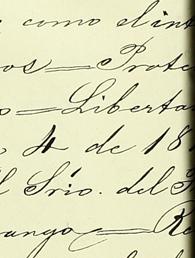 como el int
os — Prote
— Liberta
4 de 18
l Srio. del
ango — Re